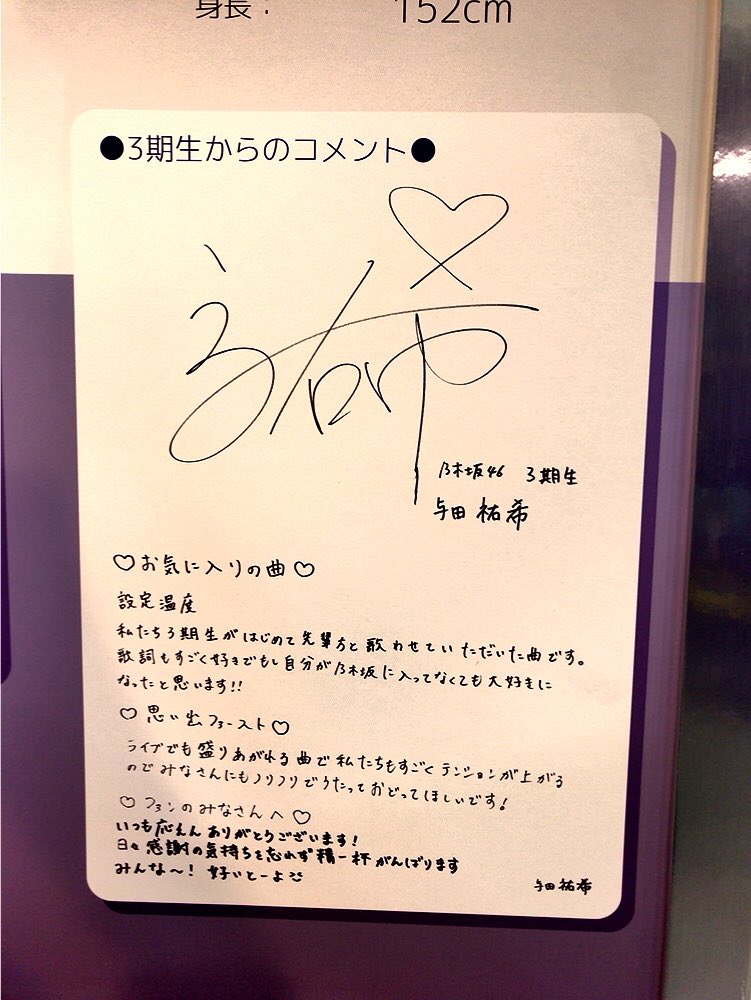 身長： 152cm
●3期生からのコメント●
祐希
乃木坂46 3期生
与田 祐希
♡お気に入りの曲♡
設定温度
私たち3期生がはじめて先輩方と歌わせていただいた曲です。
歌詞もすごく好きでもし自分が乃木坂に入ってなくても大好きに
なったと思います!!
♡思い出ファースト♡
ライブでも盛りあがれる曲で私たちもすごくテンションが上がる
のでみなさんにもノリノリでうたっておどってほしいです！
♡ファンのみなさんへ♡
いつも応えんありがとうございます！
日々感謝の気持ちを忘れず精一杯がんばります
みんな〜！好いとーよ
与田祐希